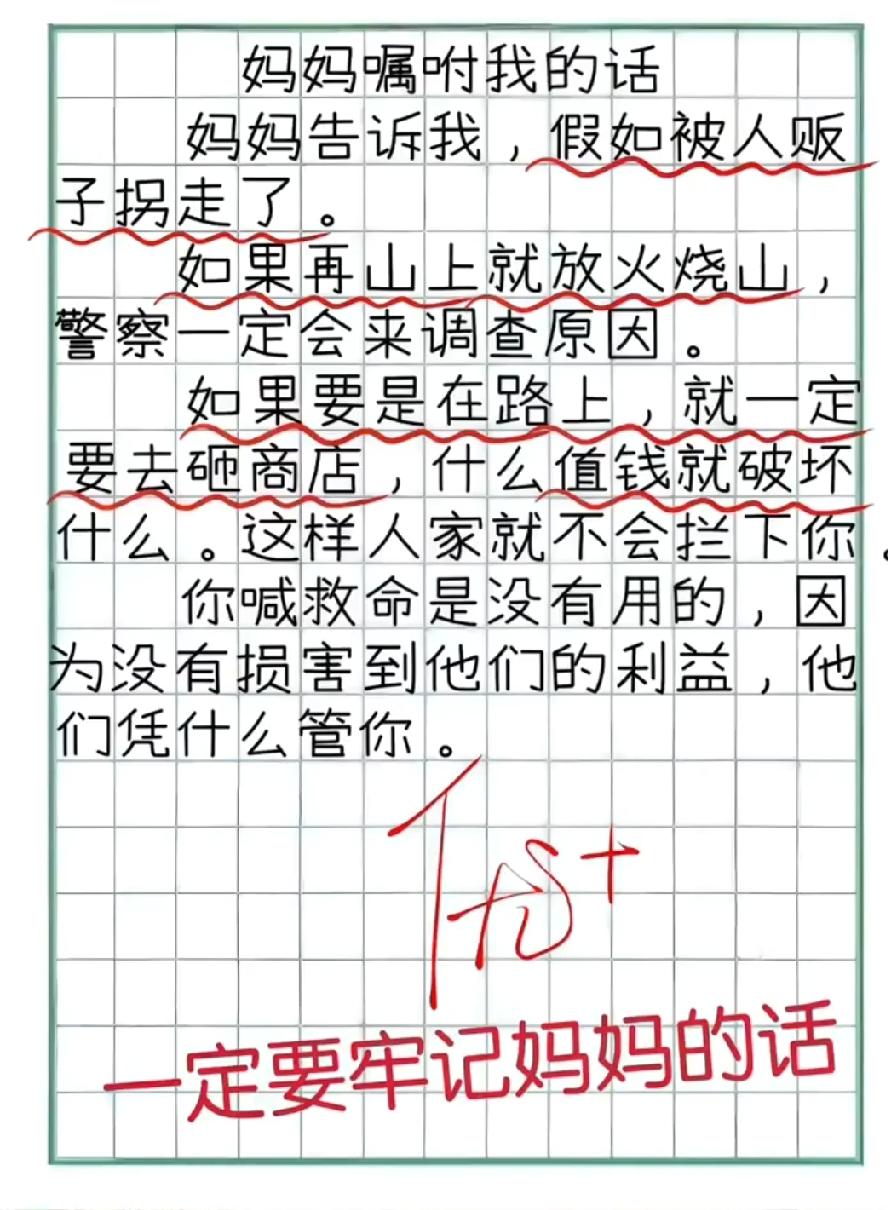 妈妈嘱咐我的话
妈妈告诉我，假如被人贩
子拐走了。
如果再山上就放火烧山，
警察一定会来调查原因。
如果要是在路上，就一定
要去砸商店，什么值钱就破坏
什么。这样人家就不会拦下你。
你喊救命是没有用的，因
为没有损害到他们的利益，他
们凭什么管你。
优+
一定要牢记妈妈的话